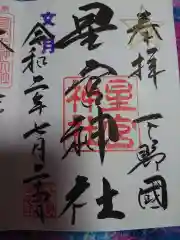 奉拝
下野國
星宮神社
星宮
神社
文月
令和二年七月二十四日